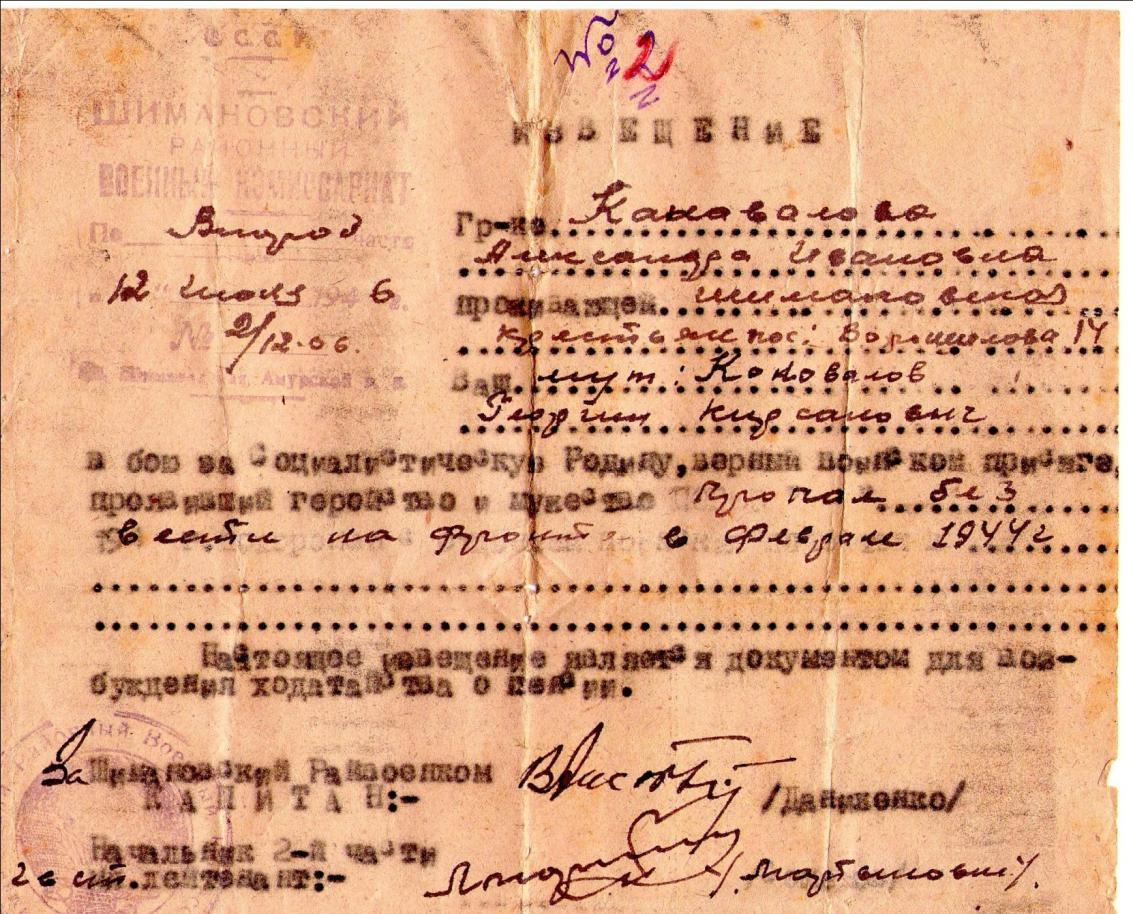 СССР
№ 2
ШИМАНОВСКИЙ
РАЙОННЫЙ
ВОЕННЫЙ КОМИССАРИАТ
По Второй части
12 июля 194 6 г.
№ 2/12.06.
ИЗВЕЩЕНИЕ
Гр-ке. Канавалова
Александра Ивановна
проживающей. Шимановской
крестьян пос: Ворошилова 14
Ваш муж: Коновалов
Георгий Кирсанович
в бою за Социалистическую Родину, верный воинской присяге,
проявивший геройство и мужество Пропал без
вести на фронте в Феврале 1944 г
Настоящее извещение является документом для воз-
буждения ходатайства о пенсии.
За Шимановский Райвоенком
КАПИТАН:- /Даниженко/
Начальник 2-й части
ст.лейтенант:- /Мартынович/.